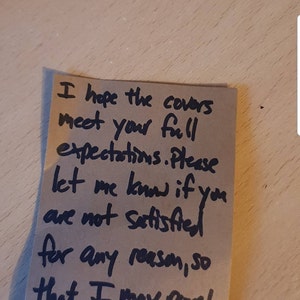 I hope the covers
meet your full
expectations. Please
let me know if you
are not satisfied
for any reason, so
that I may